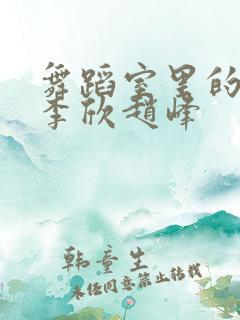 舞蹈室里的
李欣赵峰
韩童生
未经同意禁止转载